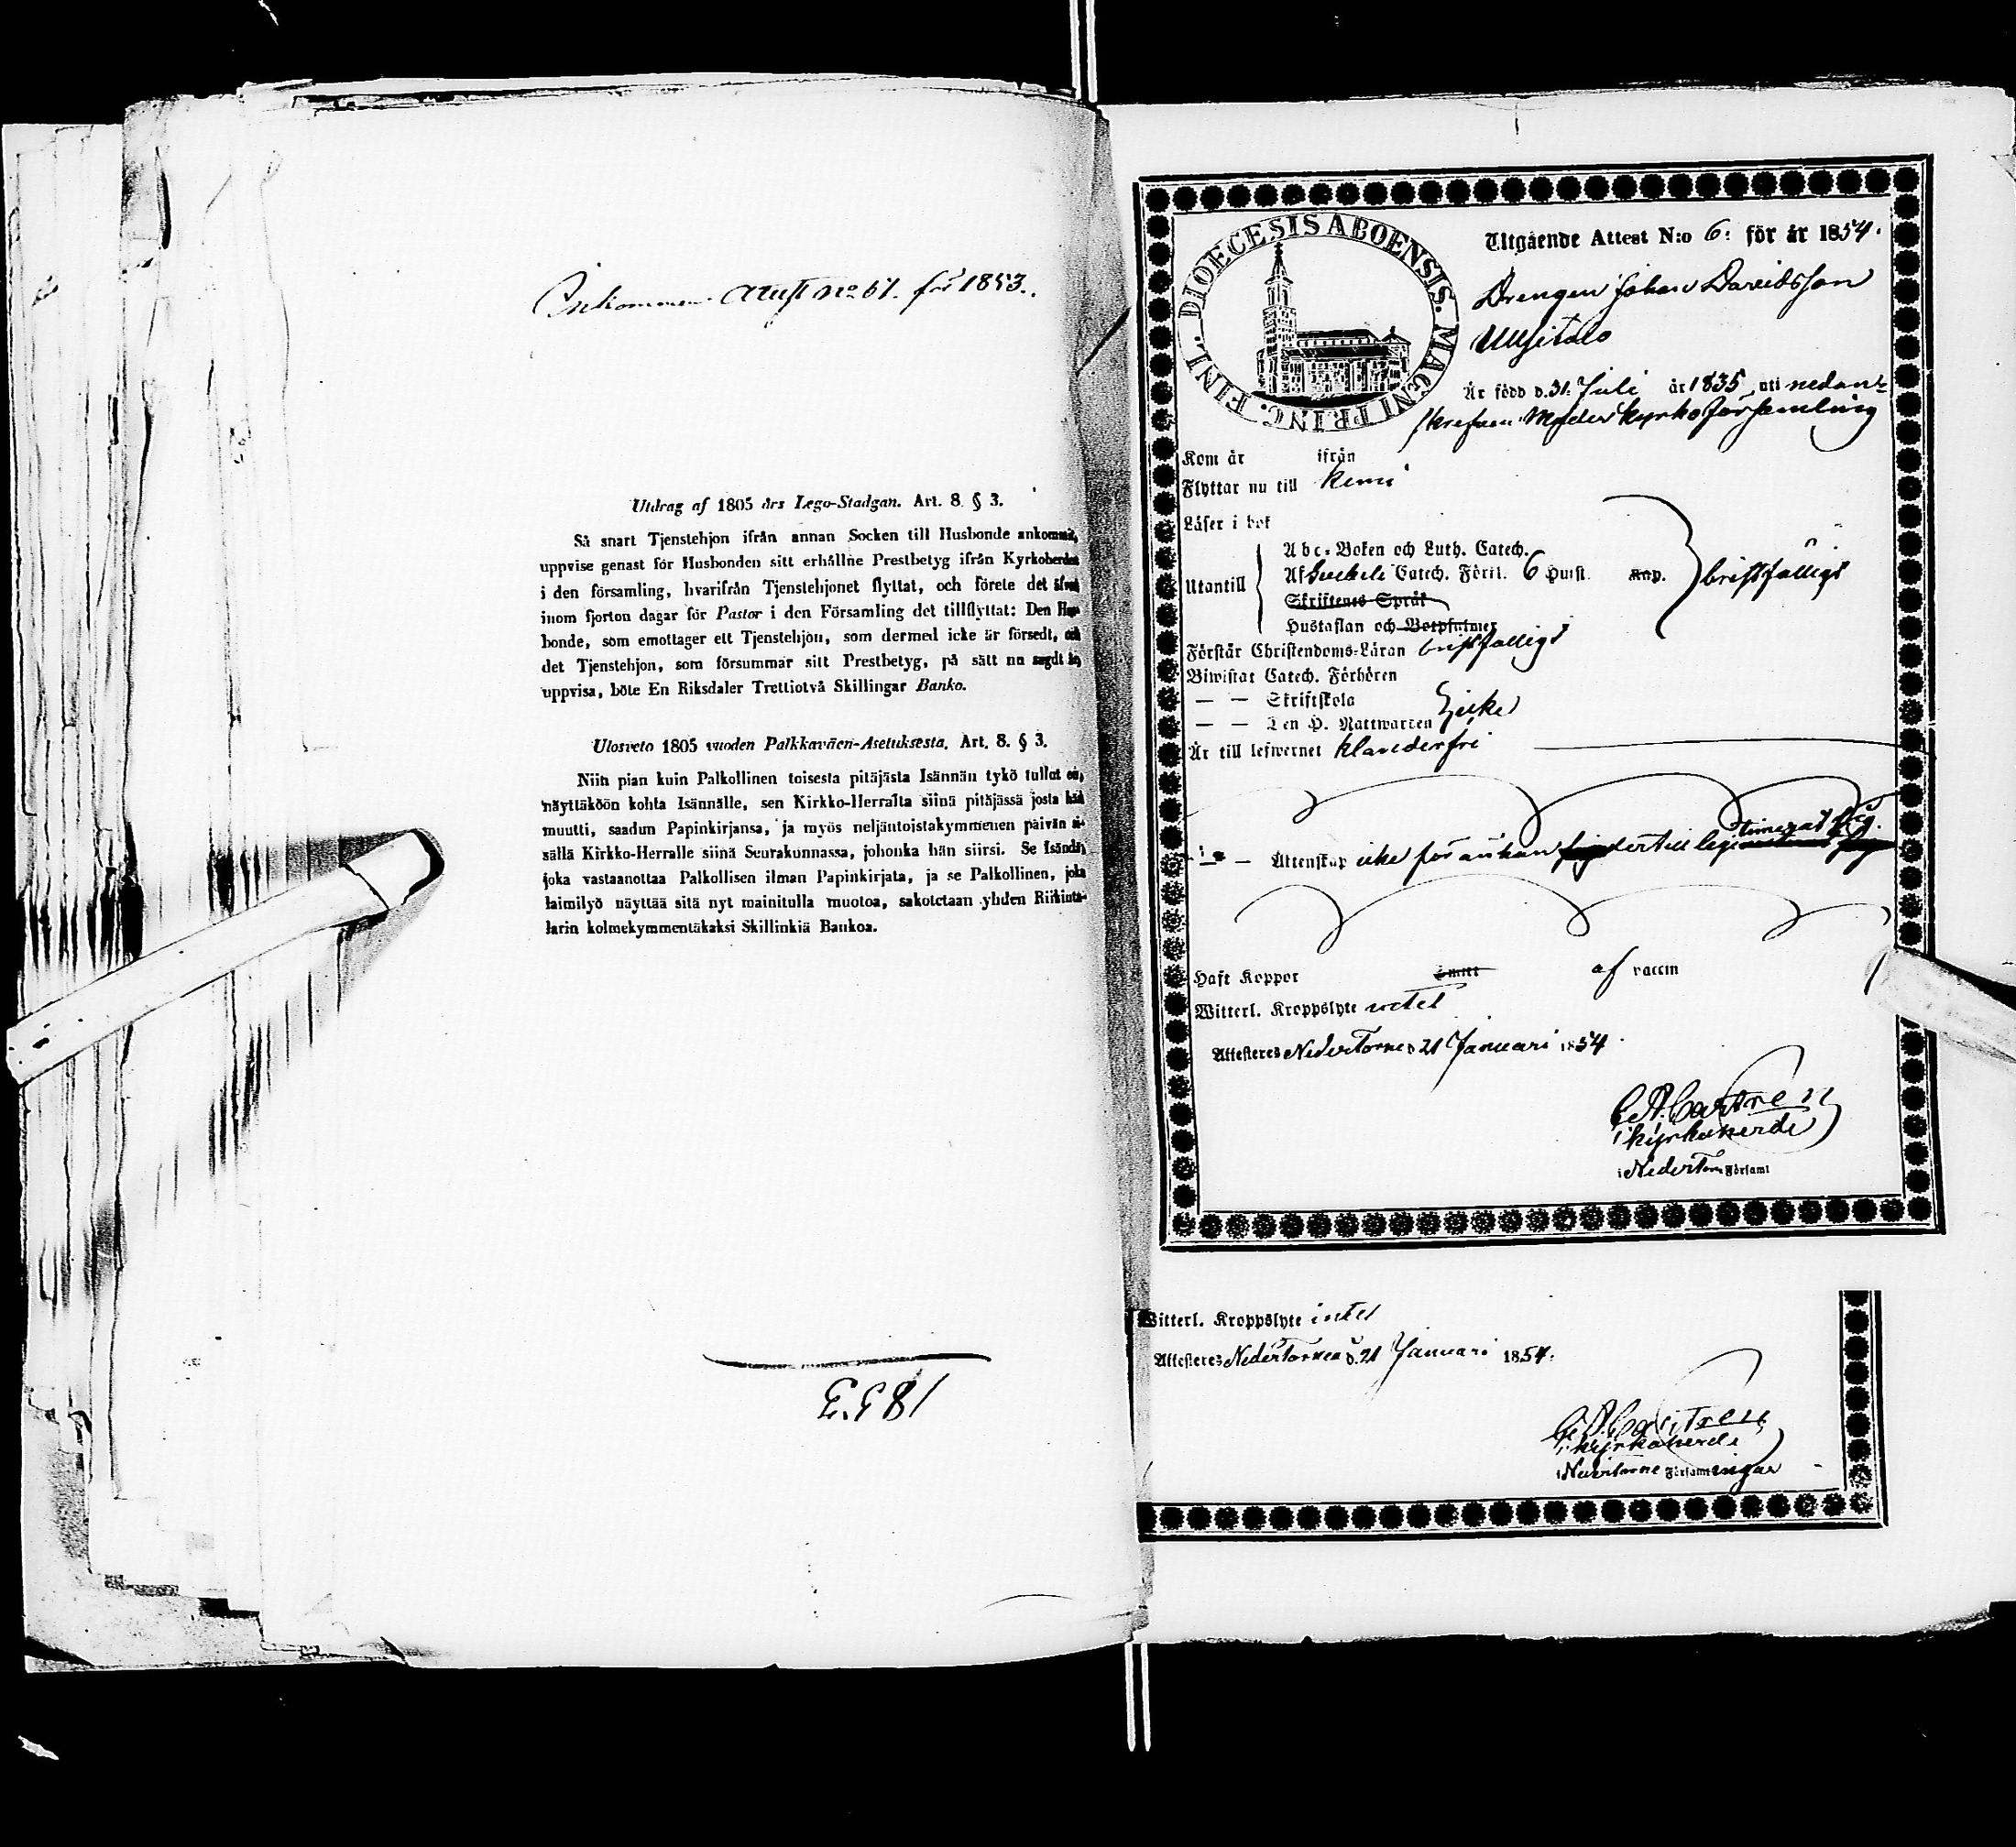 Inkommen Attest No 67. för 1853.
Utdrag af 1805 års Lego-Stadgan. Art. 8 § 3.
Så snart Tjenstehjon ifrån annan Socken till Husbonde ankommit,
uppvise genast för Husbonden sitt erhållne Prestbetyg ifrån Kyrkoherden
i den församling, hvarifrån Tjenstehjonet flyttat, och förete det äfven
inom fjorton dagar för Pastor i den Församling det tillflyttat: Den Hus-
bonde, som emottager ett Tjenstehjon, som dermed icke är försedt, och
det Tjenstehjon, som försummar sitt Prestbetyg, på sätt nu sagdt är,
uppvisa, böte En Riksdaler Trettiotvå Skillingar Banko.
Ulosveto 1805 vuoden Palkkaväen-Asetuksesta. Art. 8. § 3.
Niin pian kuin Palkollinen toisesta pitäjästä Isännän tykö tullut on,
näyttäköön kohta Isännälle, sen Kirkko-Herralta siinä pitäjässä josta hän
muutti, saadun Papinkirjansa, ja myös neljäntoistakymmenen päivän si-
sällä Kirkko-Herralle siinä Seurakunnassa, johonka hän siirsi. Se Isändä,
joka vastaanottaa Palkollisen ilman Papinkirjata, ja se Palkollinen, joka
laimilyö näyttää sitä nyt mainitulla muotoa, sakotetaan yhden Riikinta-
larin kolmekymmentäkaksi Skillinkiä Bankoa.
1853
DIOECESIS ABOENSIS. MAGNI PRINC. FINL.
Utgående Attest N:o 6: för år 1854.
Drengen Johan Davidsson
Uusitalo
Är född d. 31 Juli år 1835, uti nedan-
skrefven Moderkyrkoförsamling
Kom år ifrån
Flyttar nu till Kemi
Läser i bok
Utantill
Abc-Boken och Luth. Catech.
Af Catech. Förkl. 6 Hufst. Kap. bristfälligt
Skriftenes Språk
Hustaflan och Botpsalmer
Förstår Christendoms-Läran bristfälligt
Biwistat Catech. Förhören
— — Skriftskola
— — Den H. Nattwarden Icke
Är till lefwernet klanderfri
— Äktenskap icke förr än han dertill legitimerat sig.
Haft Koppor Smitt af vaccin
Witterl. Kroppslyte intet
Attesteras NederTorneå d. 21 Januari 1854
C. A. Castrén
Kyrkoherde
i NederTorn Församl
Witterl. Kroppslyte intet
Attesteras Nedertorneå d. 21 Januari 1854.
C. A. Castrén
Kyrkoherde
i Nedertorne Församlingar